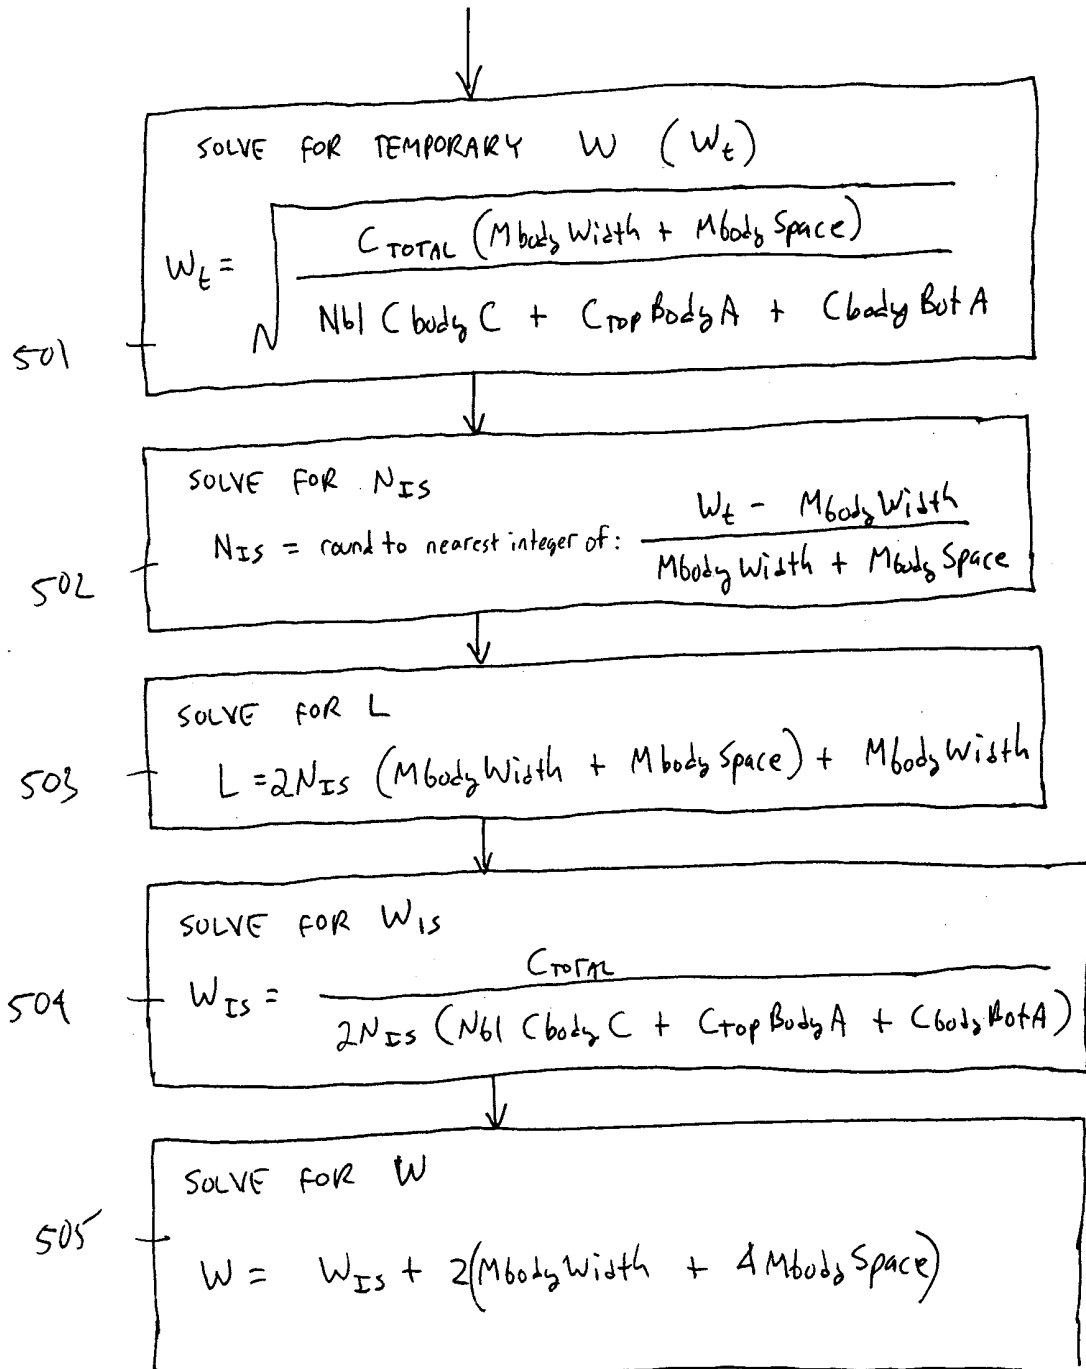 SOLVE FOR TEMPORARY W (Wt)
Wt = √ CTOTAL (MbodyWidth + MbodySpace)
Nbl CbodyC + CTopBodyA + CbodyBotA
501
SOLVE FOR NIS
NIS = round to nearest integer of: Wt - MbodyWidth
MbodyWidth + MbodySpace
502
SOLVE FOR L
L = 2NIS (MbodyWidth + MbodySpace) + MbodyWidth
503
SOLVE FOR WIS
WIS = CTOTAL
2NIS (Nbl CbodyC + CTopBodyA + CbodyBotA)
504
SOLVE FOR W
W = WIS + 2(MbodyWidth + 4MbodySpace)
505